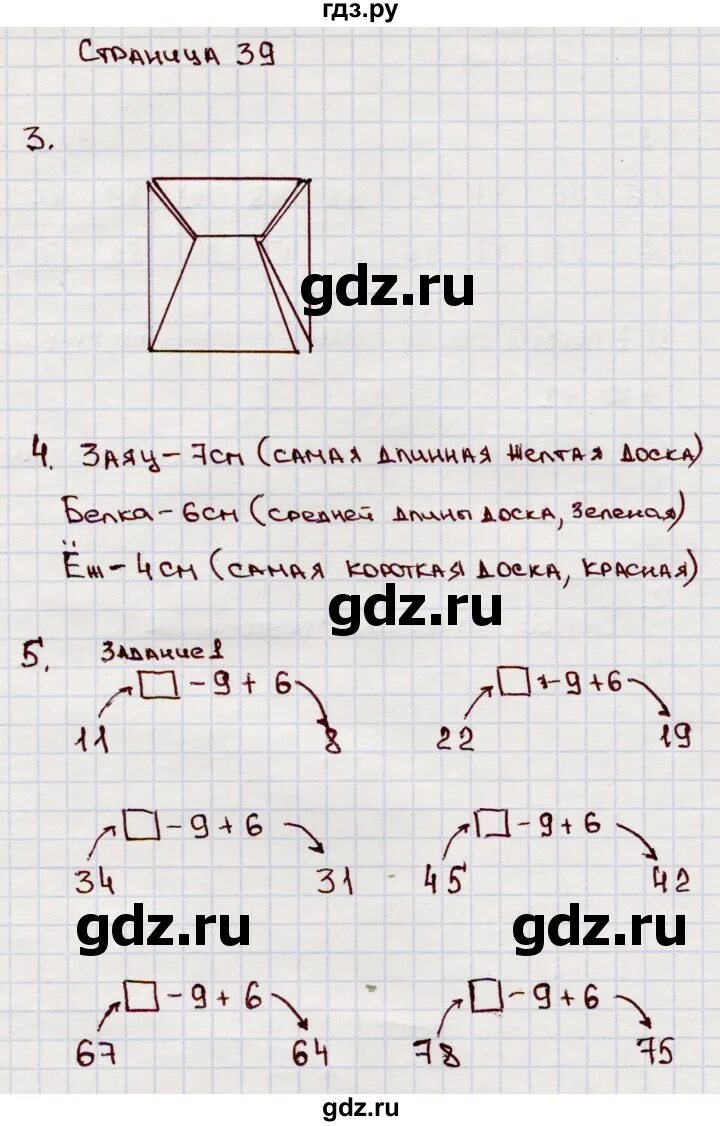 гдз.ру
Страница 39
3.
gdz.ru
4. Заяц - 7см (самая длинная желтая доска)
Белка - 6см (средней длины доска, зеленая)
Ёж - 4см (самая короткая доска, красная)
gdz.ru
5. Задание 1
□ - 9 + 6 □ - 9 + 6
11 8 22 19
□ - 9 + 6 □ - 9 + 6
34 31 45 42
gdz.ru gdz.ru
□ - 9 + 6 □ - 9 + 6
67 64 78 75
gdz.ru